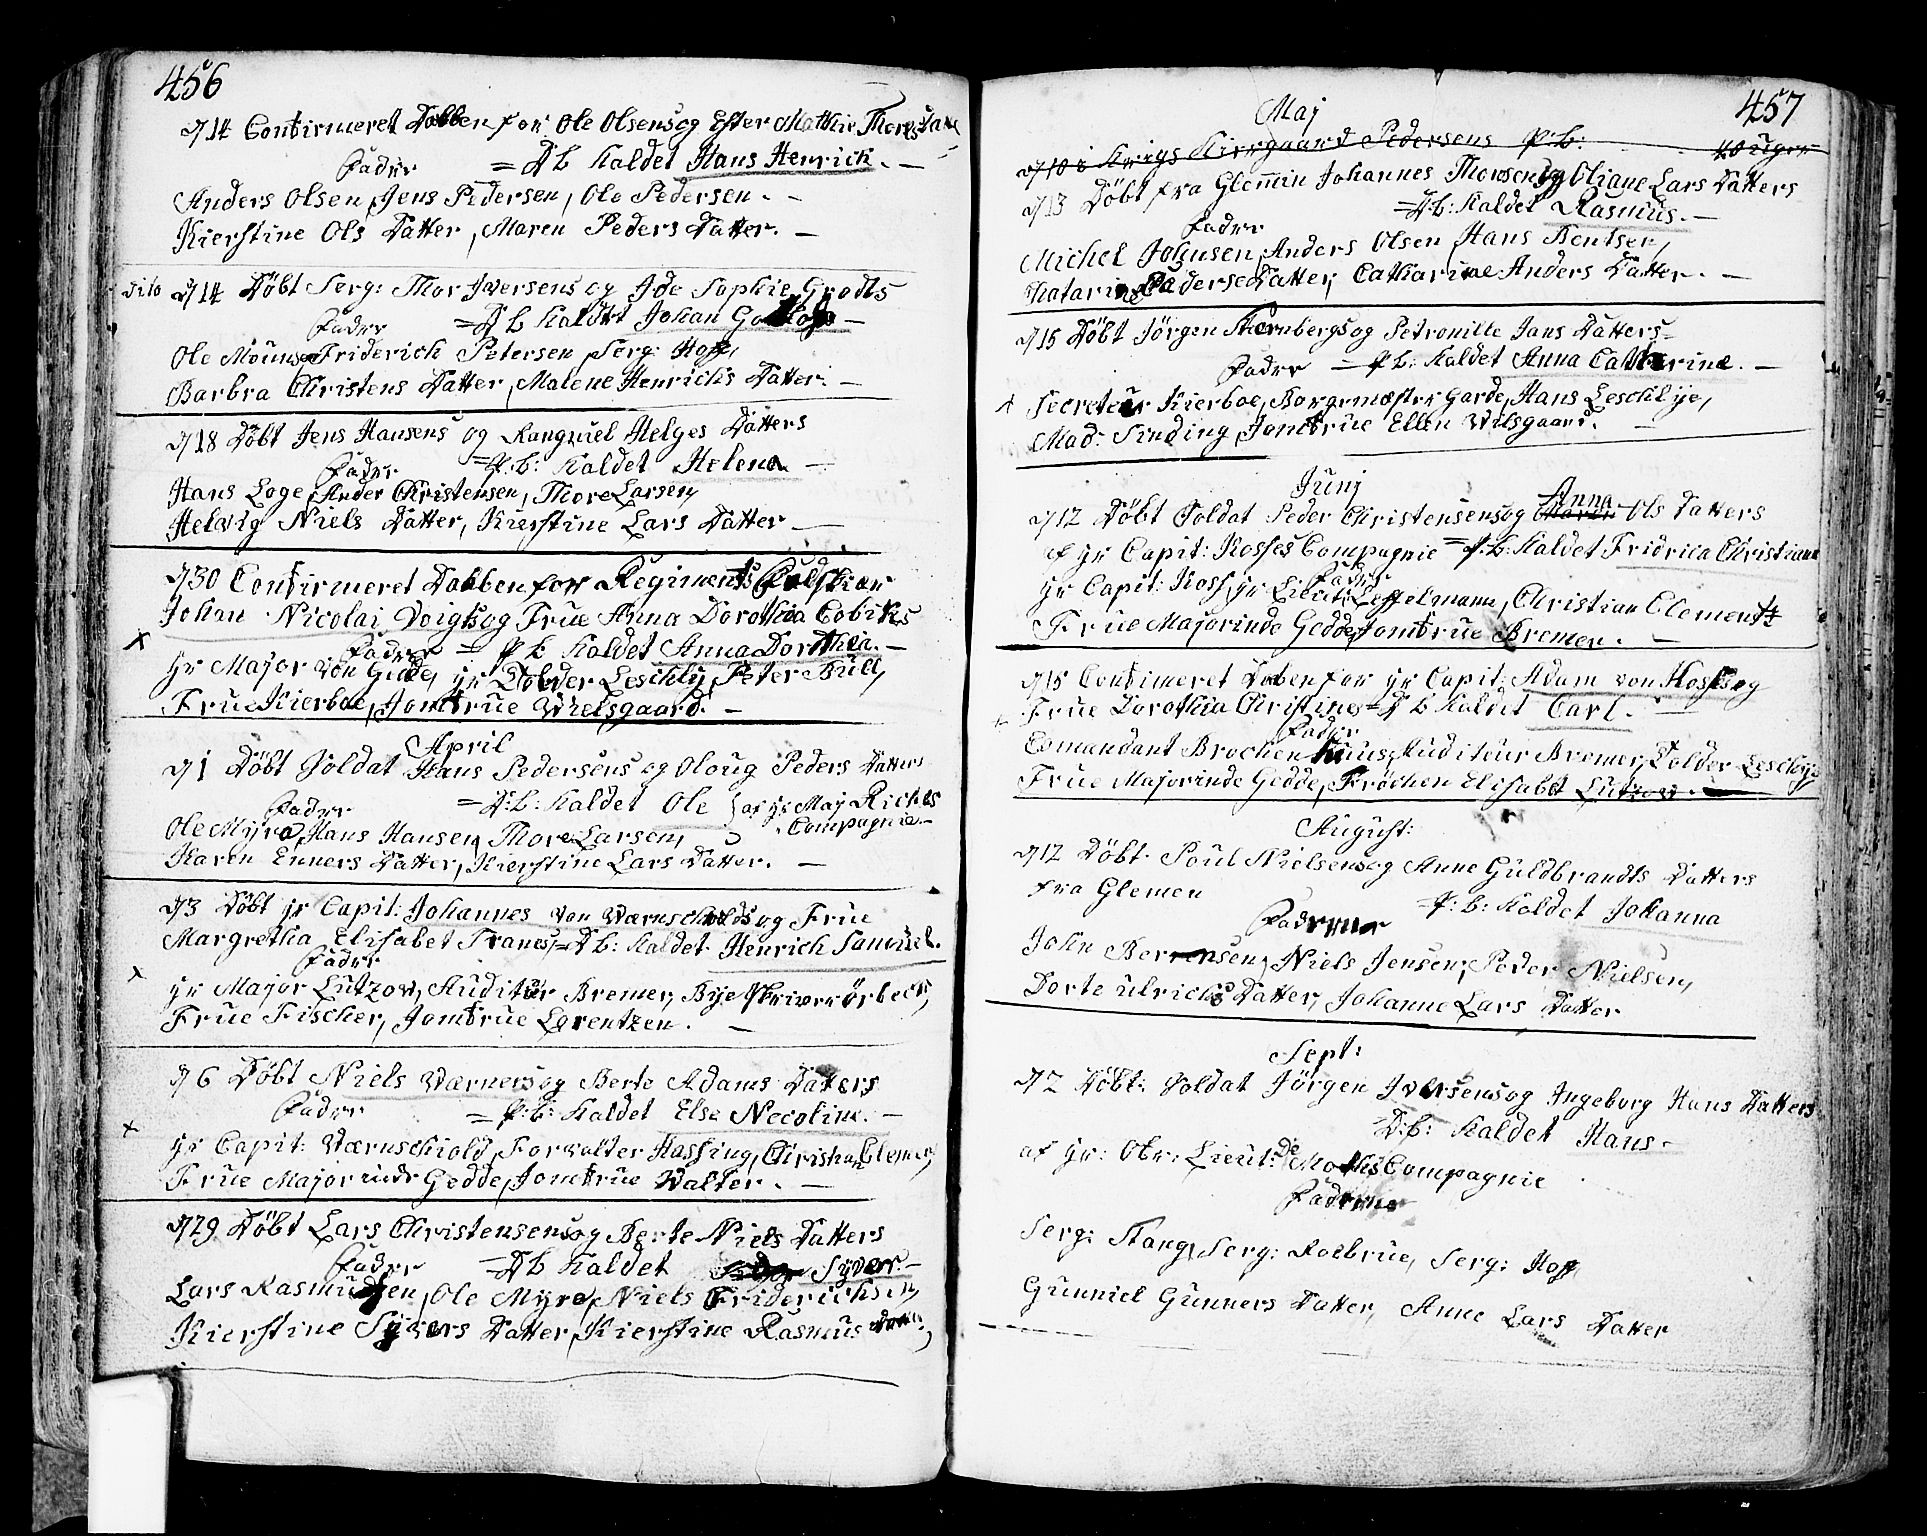 456
d 14 Confirmeret Dobben for Ole Olsens og Ester Mathie Thores Datt
Fadr = D b kaldet Hans Henrich. —
Anders Olsen, Jens Pedersen, Ole Pedersen. —
Kierstine Ols Datter, Maren Peders Datter. —
Dito d 14 Döbt Serg: Thor Iversens og Ide Sophie Grodts
Fadr = D b kaldet Johan —
Ole Friderich Petersen, Serg: Hoff,
Barbra Christens Datter, Malene Henrichs Datter. —
d 18 Döbt Jens Hansens og Rangniel Helges Datters
Fadr = P: b: kaldet Helena —
Hans Loge, Ander Christensen, Thore Larsen,
Helvig Niels Datter, Kierstine Lars Datter —
d 30 Confirmeret Dobben for Regiments
Johan Nicolai Voigts og Frue Anna Dorothia Cobikes
Fadr = P b kaldet Anna Dorthea. —
x Hr Major von Gede, Hr Tolder Leschly, Peter Bull,
Frue Kierboe, Jomfrue Wielsgaard. —
April
d 1 Döbt Soldat Hans Pedersens og Oloug Peders Datters
Fadr = D: b: kaldet Ole { af Hr Maj Riches
Compagnie —
Ole Myre, Hans Hansen, Thore Larsen,
Karen Enners Datter, Kierstine Lars Datter. —
d 3 Döbt Hr Capit: Johannes von Værnscholds og Frue
Margretha Elisabet Franes = D b: kaldet Henrich Samuel.
Fadr
x Hr Major Lützow, Auditör Bremer, Bye Skriver Örbeck,
Frue Fischer, Jomfrue Lorentzen. —
d 6 Döbt Niels Wærners og Berte Adams Datters
Fadr = P: b: kaldet Else Necoline. —
x Hr Capit: Værnschiold, Forvalter Hassing, Christian Clemen,
Frue Majorinde Gedde, Jomfrue Walter. —
d 29 Döbt Lars Christensens og Berte Niels Datters
Fadr = D b kaldet Syver. —
Lars Rasmusen, Ole Myre, Niels Friderichsen,
Kierstine Syvers Datter, Kierstine Rasmus Datter,
457
Maj
d 10 i Krigs Kirrgaard Pedersens P: b: 40 uger
d 13 Döbt fra Glemin Johannes Thorsens og Oliane Lars Datters
Fadr = D: b: kaldet Rasmus. —
Michel Johnsen, Anders Olsen, Hans Bentsen,
Katarine Pederse Datter, Catharine Anders Datter. —
d 15 Döbt Jörgen Sternbergs og Petronille Jans Datters
Fadr = P: b: kaldet Anna Catharine. —
x Secreteur Kierboe, Borgemester Garde, Hans Leschlye,
Mad: Sinding, Jomfrue Ellen Wilsgaard. —
Junj
Anna
d 12 Döbt Soldat Peder Christensens og Maren Ols Datters
af Hr Capit: Kosses Compagnie = P: b: kaldet Fridrica Christiana
Fadr
Hr Capit: Koss, Hr Lieut: Leffelmann, Christian Clementz
Frue Majorinde Gedde, Jomfrue Bremer. —
d 15 Confimeret Daben for Hr Capit: Adam von Koss og
x Frue Dorothia Christines = D b kaldet Carl. —
Fadr
Comandant Brochenhuus, Auditeur Bremer, Tolder Leschlye
Frue Majorinde Gedde, Fröchen Elisabet Lützow. —
August:
d 12 Döbt Poul Nielsens og Anne Guldbrandts Datters
fra Glemen = P: b: kaldet Johanna
Fadrene
John Berrensen, Niels Jensen, Peder Nielsen,
Dorte Ulrichs Datter, Johanne Lars Datter
Sept:
d 2 Döbt: Soldat Jörgen Iversens og Ingeborg Hans Datters
D: b: kaldet Hans —
af Hr: Obr: Lieut: De Moths Compagnie
Fadrene
Serg: Stang, Serg: Roebrue, Serg: Hoff
Gunniel Gunners Datter, Anne Lars Datter